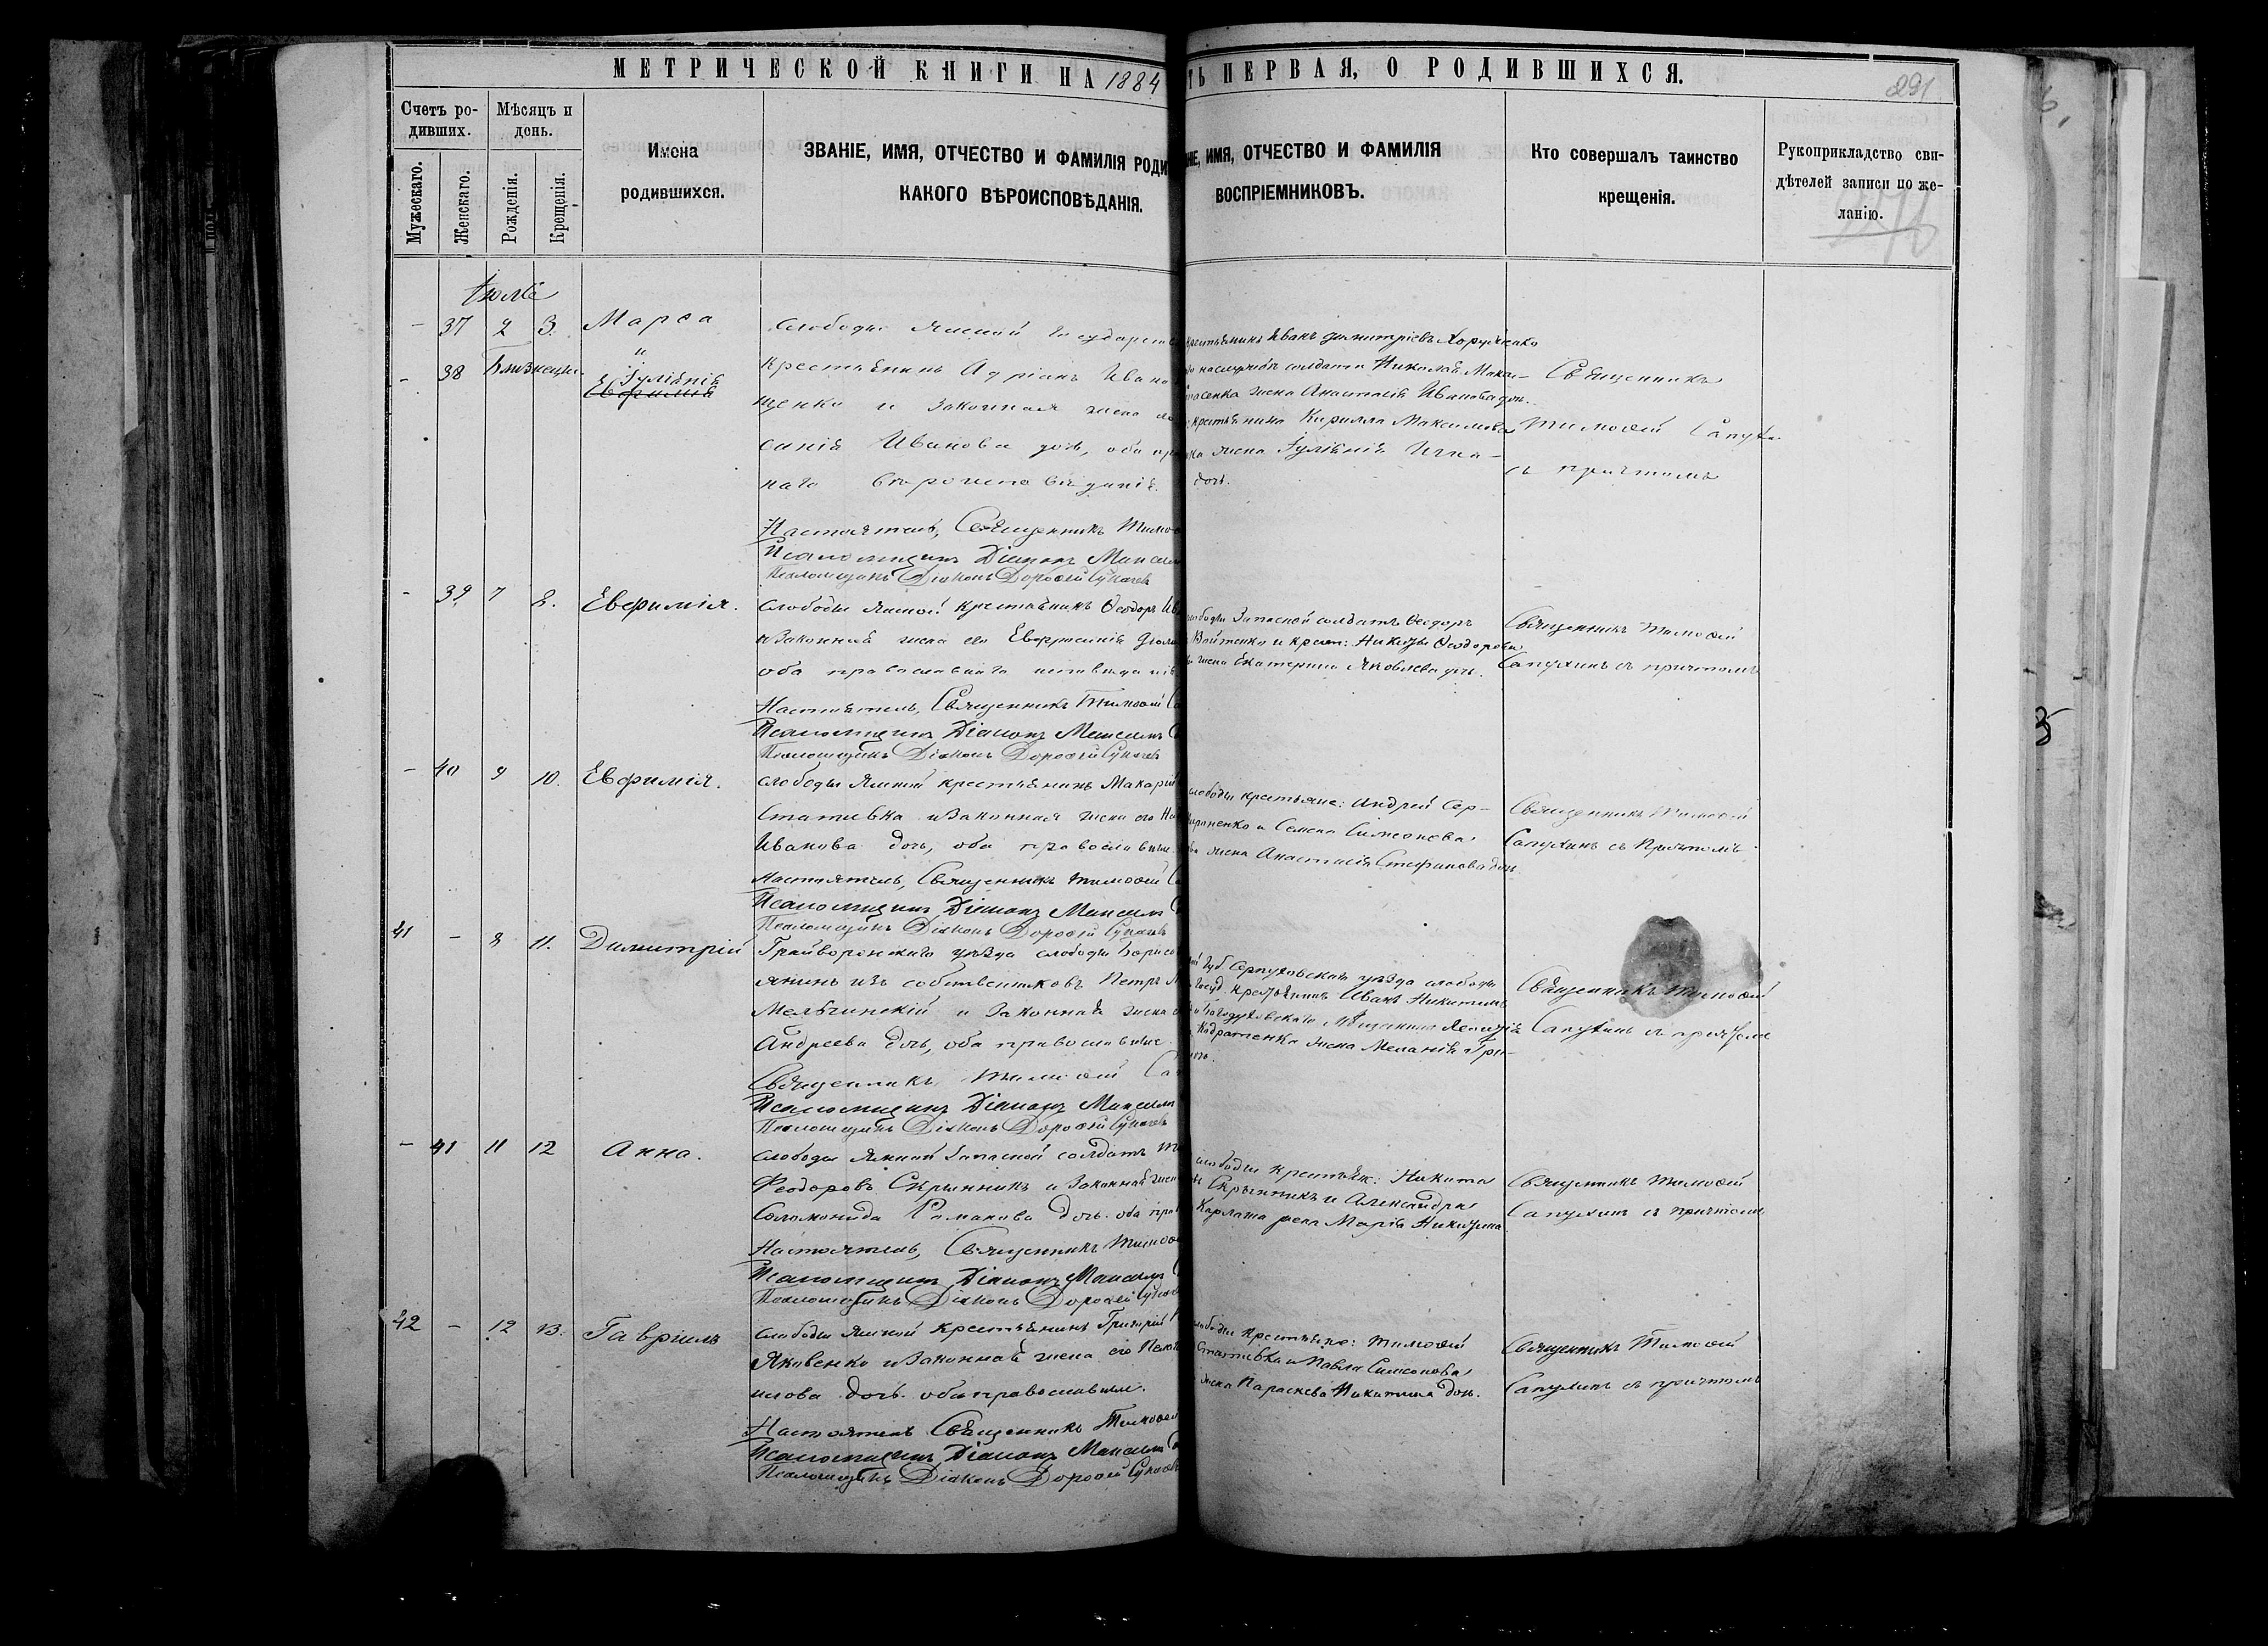 МЕТРИЧЕСКОЙ КНИГИ НА 1884
ТЬ ПЕРВАЯ, О РОДИВШИХСЯ.
291
Счетъ ро-
дивших.
Мужескаго.
Женскаго.
Мѣсяцъ и
день.
Рожденія.
Крещенія.
Имена
родившихся.
ЗВАНІЕ, ИМЯ, ОТЧЕСТВО И ФАМИЛІЯ РОДИ
КАКОГО ВѢРОИСПОВѢДАНІЯ.
ИМЯ, ОТЧЕСТВО И ФАМИЛІЯ
ВОСПРІЕМНИКОВЪ.
Кто совершалъ таинство
крещенія.
Рукоприкладство сви-
дѣтелей записи по же-
ланію.
Іюль
- 37 2 3. Марѳа
- 38 Близнецы и
Іуліанія
Слободы Ямной Государств
крестьянинъ Адріанъ Ивано
щенко и законная жена
Иванова доч, оба пра
наго вѣроисповѣданія.
Настоятель, Священникъ Тимоѳ
Псаломщикъ Діаконъ Максим
Псаломщикъ Діаконъ Дороѳей Сукачев
крестьянинъ Иванъ Димитріевъ
солдата Николая Мака-
сенка жена Анастасія Иванова доч.
крестьянина Кирилла Максимова
жена Іуліанія Игна-
доч.
Священникъ
Тимоѳей Сапухин
съ причтомъ
- 39 7 8. Евфимія.
Слободы Ямной крестьянинъ Ѳеодоръ Ив
и законная жена его Евфросинія
оба православнаго исповѣданія
Настоятель, Священникъ Тимоѳей Са
Псаломщикъ Діаконъ Максимъ С
Псаломщикъ Діаконъ Дороѳей Сукачев
слободы Запасной солдатъ Ѳеодоръ
Войтенко и крест: Никиты Ѳеодорова
жена Екатерина Яковлева доч.
Священникъ Тимоѳей
Сапухинъ съ причтомъ
- 40 9 10. Евфимія.
Слободы Ямной крестьянинъ Макарій
Стативка и законная жена его
Иванова доч, оба православные.
Настоятель, Священникъ Тимоѳей С
Псаломщикъ Діаконъ Максим С
Псаломщикъ Діаконъ Дороѳей Сукачев
слободы крестьяне: Андрей Сер-
и Семена Симонова
жена Анастасія Стефанова доч
Священникъ Тимоѳей
Сапухинъ съ Причтомъ
41 - 8 11. Димитрій
Грайворонскаго уѣзда слободы Борисо
янинъ изъ собственниковъ Петръ
и законная жена
Андреева доч, оба православные.
Священникъ Тимоѳей Сап
Псаломщикъ Діаконъ Максим
Псаломщикъ Діаконъ Дороѳей Сукачев
Губ. Серпуховскаго уѣзда слободы
Госуд. крестьянинъ Иванъ Никитинъ
и Богодуховскаго Мѣщанина
жена Меланія Гри-
Священникъ Тимоѳей
Сапухинъ съ причтом
- 41 11 12 Анна.
Слободы Ямной Запасной солдатъ
Ѳеодоровъ Скрынникъ и законная жен
Соломонида Романова доч. оба прав
Настоятель, Священникъ Тимоѳ
Псаломщикъ Діаконъ Максим
Псаломщикъ Діаконъ Дороѳей Сукач
слободы крестьян: Никита
Скрынникъ и Александра
Марія Никитина
Священникъ Тимоѳей
Сапухинъ съ причтом
42 - 12 13. Гавріилъ
Слободы Ямной крестьянинъ Григорій
Яковенко и законная жена его Пелаг
доч. оба православные.
Настоятель Священникъ Тимоѳей
Псаломщикъ Діаконъ Максим
Псаломщикъ Діаконъ Дороѳей Сукачев
слободы крестьяне: Тимоѳей
Стативка и Павла Симонова
жена Параскева Никитина доч.
Священникъ Тимоѳей
Сапухинъ съ причтомъ